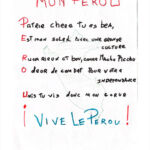 MON PEROU
Patrie chere tu es bea,
Est mon soleil avec une grande
culture
Rumoreux et bon, comme Machu Picchu
Odeur de combat pour votre
independance
Unis tu vis dans mon coeur
¡ VIVE LE PEROU !